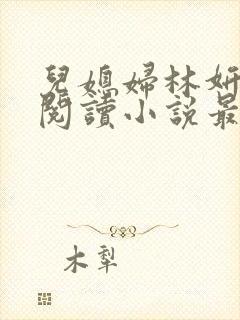 兒媳婦林妍
閱讀小說最
木犁